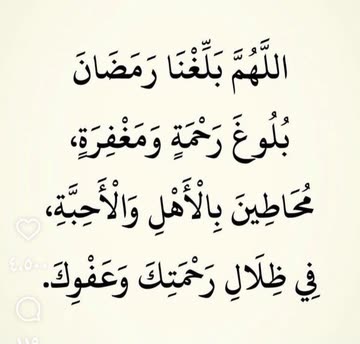 اللَّهُمَّ بَلِّغْنَا رَمَضَانَ
بُلُوغَ رَحْمَةٍ وَمَغْفِرَةٍ،
مُحَاطِينَ بِالْأَهْلِ وَالْأَحِبَّةِ،
فِي ظِلَالِ رَحْمَتِكَ وَعَفْوِكَ.